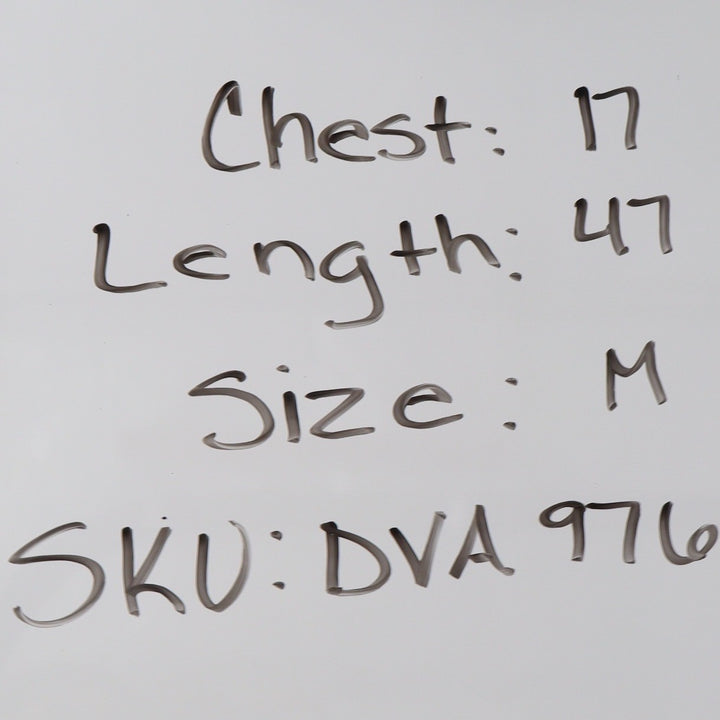 Chest: 17
Length: 47
Size: M
SKU: DVA 976